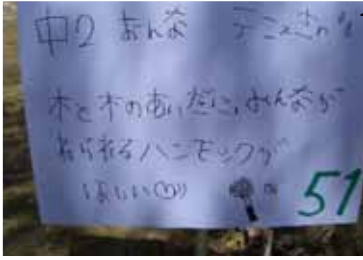 中2 おんな テニス
木と木のあいだに、みんなが
ねられるハンモックが
ほしい 51